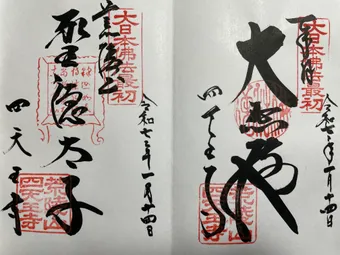 大日本佛法最初
令和七年一月十四日
四天王寺
荒陵山
四天王寺
大日本佛法最初
令和七年一月十四日
聖徳太子
四天王寺
荒陵山
四天王寺